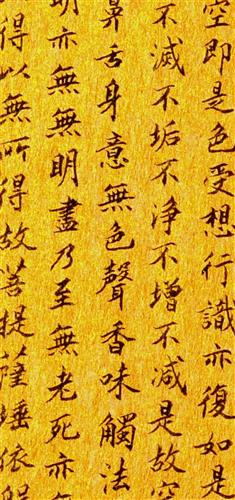 空即是色受想行識亦復如是
不滅不垢不净不增不减是故空
鼻舌身意無色聲香味觸法
明亦無無明盡乃至無老死亦
得以無所得故菩提薩埵依